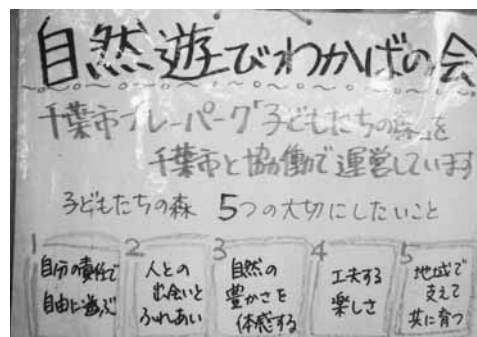 自然遊びわかばの会
千葉市プレーパーク「子どもたちの森」を
千葉市と協働で運営しています
子どもたちの森 5つの大切にしたいこと
1
自分の責任で
自由に遊ぶ
2
人との
出会いと
ふれあい
3
自然の
豊かさを
体感する
4
工夫する
楽しさ
5
地域で
支えて
共に育つ